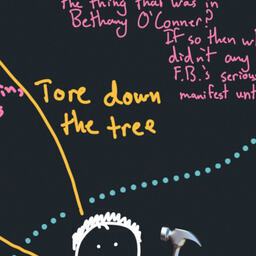 the thing that was in
Bethany O'Conner?
If so then w
didn't any
F.B.'s serious
manifest unt
ing
s
Tore down
the tree